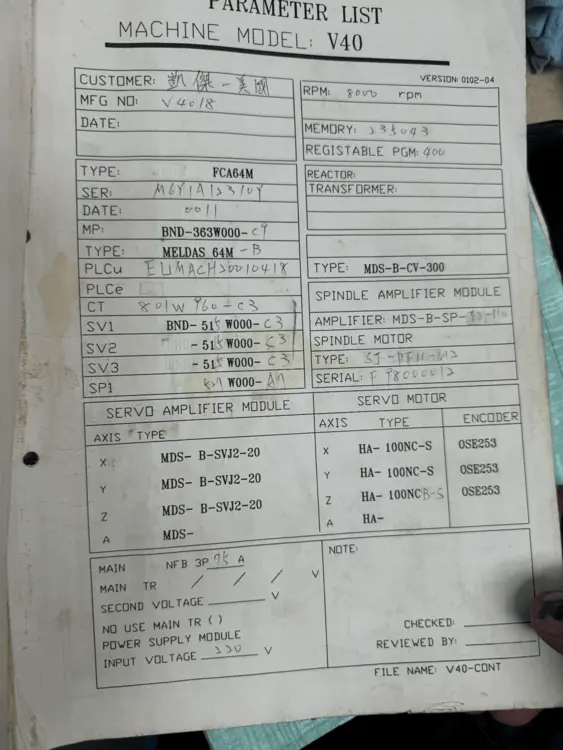 PARAMETER LIST
MACHINE MODEL: V40
VERSION: 0102-04
CUSTOMER: 凱傑-美國
MFG NO: V4018
DATE:
RPM: 8000 rpm
MEMORY: 235043
REGISTABLE PGM: 400
TYPE: FCA64M
SER: M6Y1A12310Y
DATE: 0011
MP: BND-363W000-C9
TYPE: MELDAS 64M-B
PLCu EUMACH20010418
PLCe
CT 801W960-C3
SV1 BND-515W000-C3
SV2 -515W000-C3
SV3 -515W000-C3
SP1 W000-
REACTOR:
TRANSFORMER:
TYPE: MDS-B-CV-300
SPINDLE AMPLIFIER MODULE
AMPLIFIER: MDS-B-SP-
SPINDLE MOTOR
TYPE:
SERIAL:
SERVO AMPLIFIER MODULE
AXIS TYPE
X MDS- B-SVJ2-20
Y MDS- B-SVJ2-20
Z MDS- B-SVJ2-20
A MDS-
SERVO MOTOR
AXIS TYPE ENCODER
X HA- 100NC-S OSE253
Y HA- 100NC-S OSE253
Z HA- 100NCB-S OSE253
A HA-
MAIN NFB 3P 75 A
MAIN TR / / / V
SECOND VOLTAGE V
NO USE MAIN TR ( )
POWER SUPPLY MODULE
INPUT VOLTAGE 220 V
NOTE:
CHECKED:
REVIEWED BY:
FILE NAME: V40-CONT